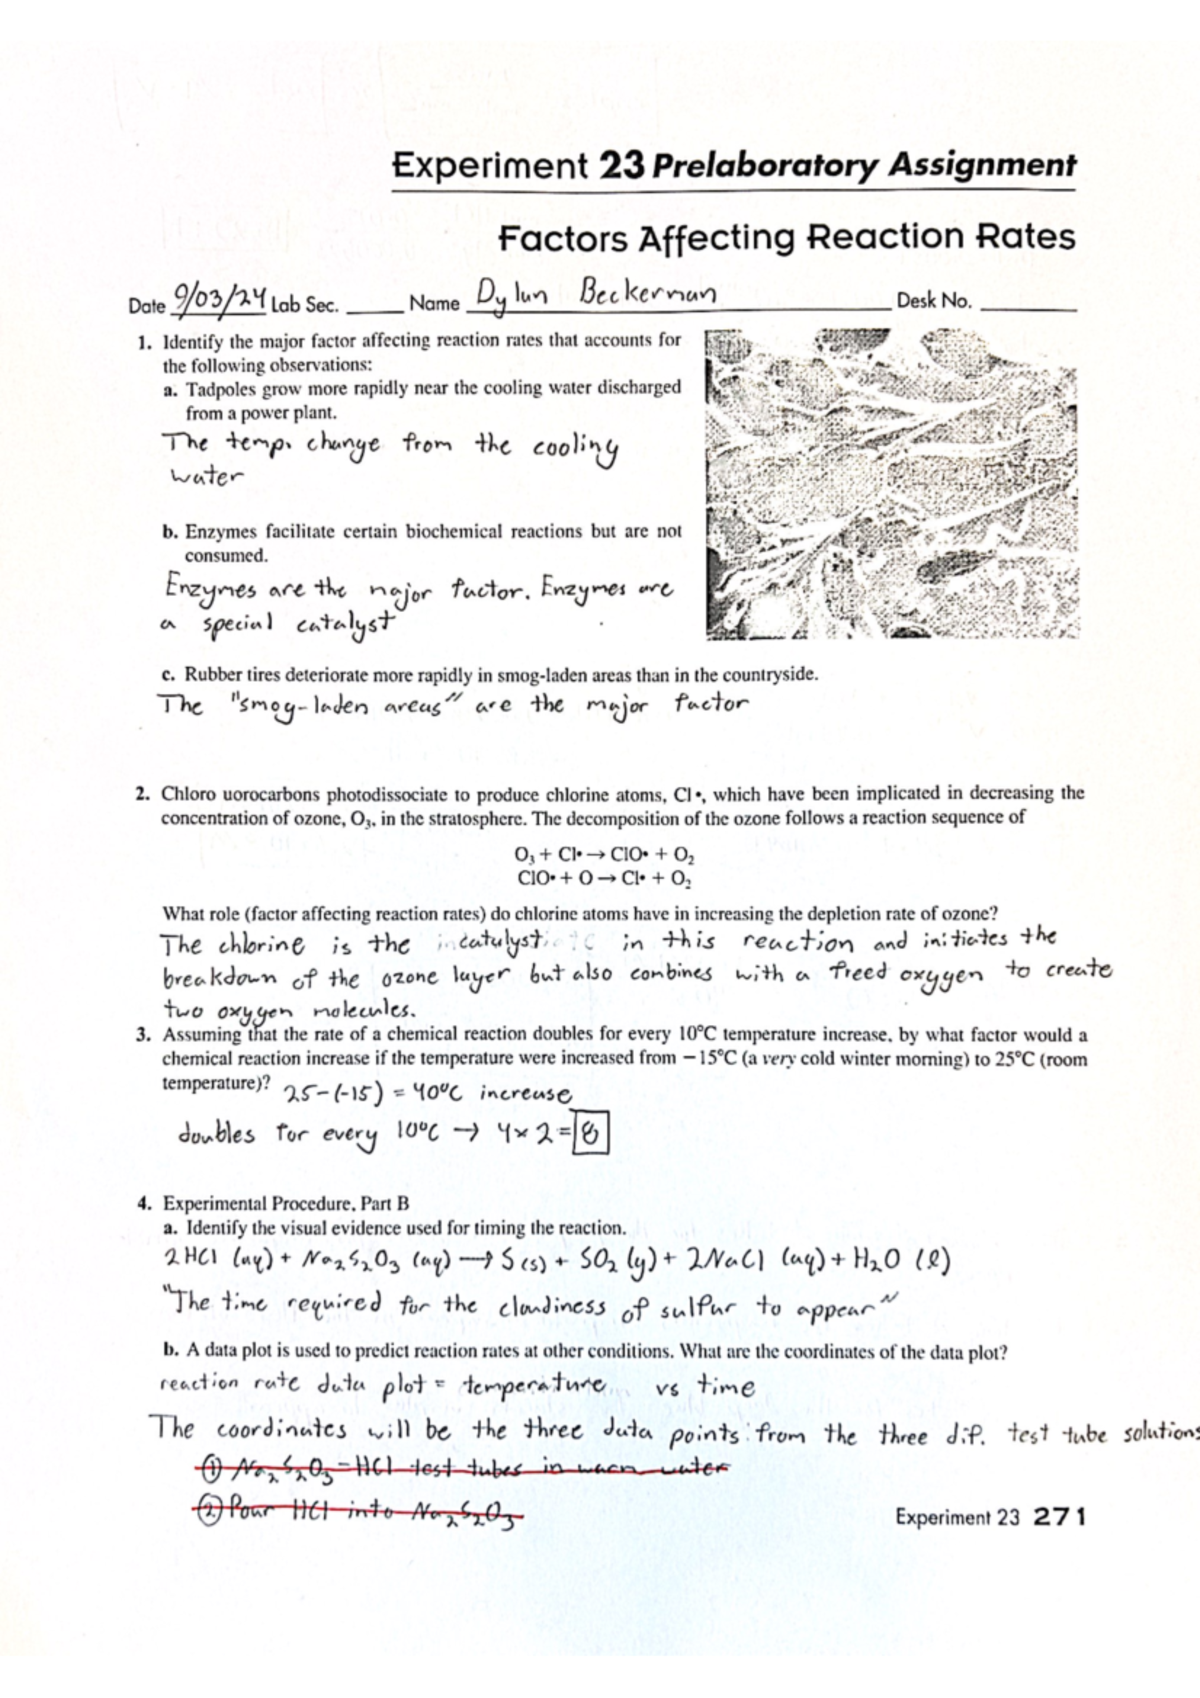 Experiment 23 Prelaboratory Assignment
Factors Affecting Reaction Rates
Date 9/03/24 Lab Sec. ______ Name Dylan Beckerman Desk No. ______
1. Identify the major factor affecting reaction rates that accounts for
the following observations:
a. Tadpoles grow more rapidly near the cooling water discharged
from a power plant.
The temp. change from the cooling
water
b. Enzymes facilitate certain biochemical reactions but are not
consumed.
Enzymes are the major factor. Enzymes are
a special catalyst
c. Rubber tires deteriorate more rapidly in smog-laden areas than in the countryside.
The "smog-laden areas" are the major factor
2. Chloro uorocarbons photodissociate to produce chlorine atoms, Cl•, which have been implicated in decreasing the
concentration of ozone, O₃, in the stratosphere. The decomposition of the ozone follows a reaction sequence of
O₃ + Cl• → ClO• + O₂
ClO• + O → Cl• + O₂
What role (factor affecting reaction rates) do chlorine atoms have in increasing the depletion rate of ozone?
The chlorine is the catalyst in this reaction and initiates the
breakdown of the ozone layer but also combines with a freed oxygen to create
two oxygen molecules.
3. Assuming that the rate of a chemical reaction doubles for every 10°C temperature increase, by what factor would a
chemical reaction increase if the temperature were increased from −15°C (a very cold winter morning) to 25°C (room
temperature)? 25-(-15) = 40°C increase
doubles for every 10°C → 4 × 2 = 8
4. Experimental Procedure, Part B
a. Identify the visual evidence used for timing the reaction.
2HCl (aq) + Na₂S₂O₃ (aq) → S (s) + SO₂ (g) + 2NaCl (aq) + H₂O (l)
"The time required for the cloudiness of sulfur to appear"
b. A data plot is used to predict reaction rates at other conditions. What are the coordinates of the data plot?
reaction rate data plot = temperature vs time
The coordinates will be the three data points from the three dif. test tube solutions
① Na₂S₂O₃-HCl test tubes in warm water
② Pour HCl into Na₂S₂O₃
Experiment 23 271